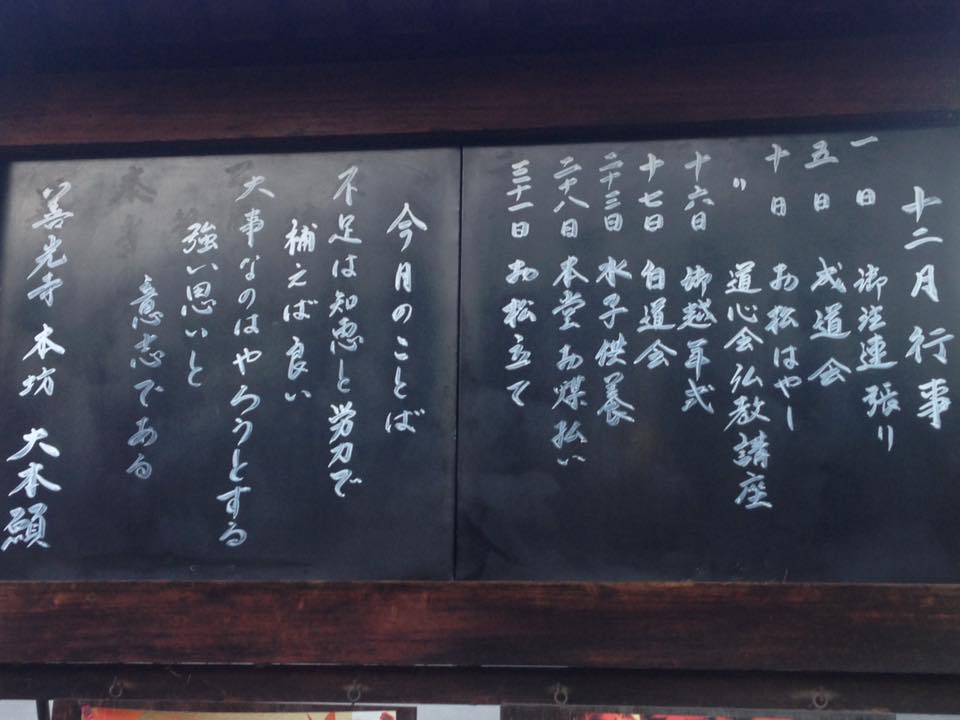 十二月行事
一日 御注連張り
五日 成道会
十日 お松はやし
〃 道心会弘教講座
十六日 御越年式
十七日 白道会
二十三日 水子供養
二十八日 本堂お煤払い
三十一日 お松立て
今月のことば
不足は知恵と労力で
補えば良い
大事なのはやろうとする
強い思いと
意志である
善光寺 本坊 大本願